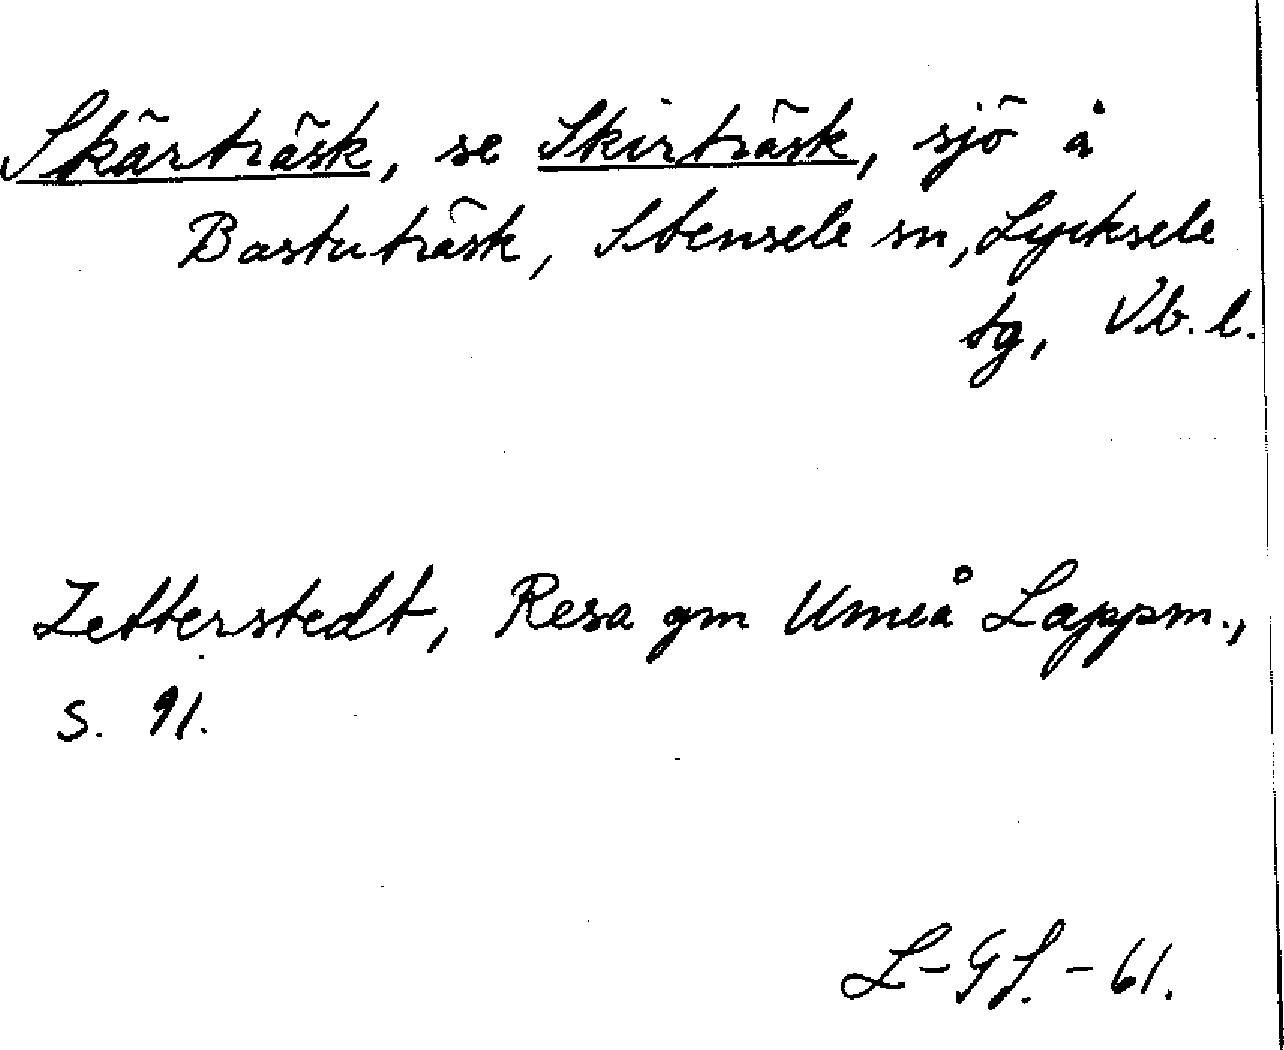 Skärträsk, se Skirträsk, sjö å
Bastuträsk, Stensele sn, Lycksele
tg, Vb. l.
Zetterstedt, Resa gm Umeå Lappm.,
s. 91.
L-GJ. - 61.